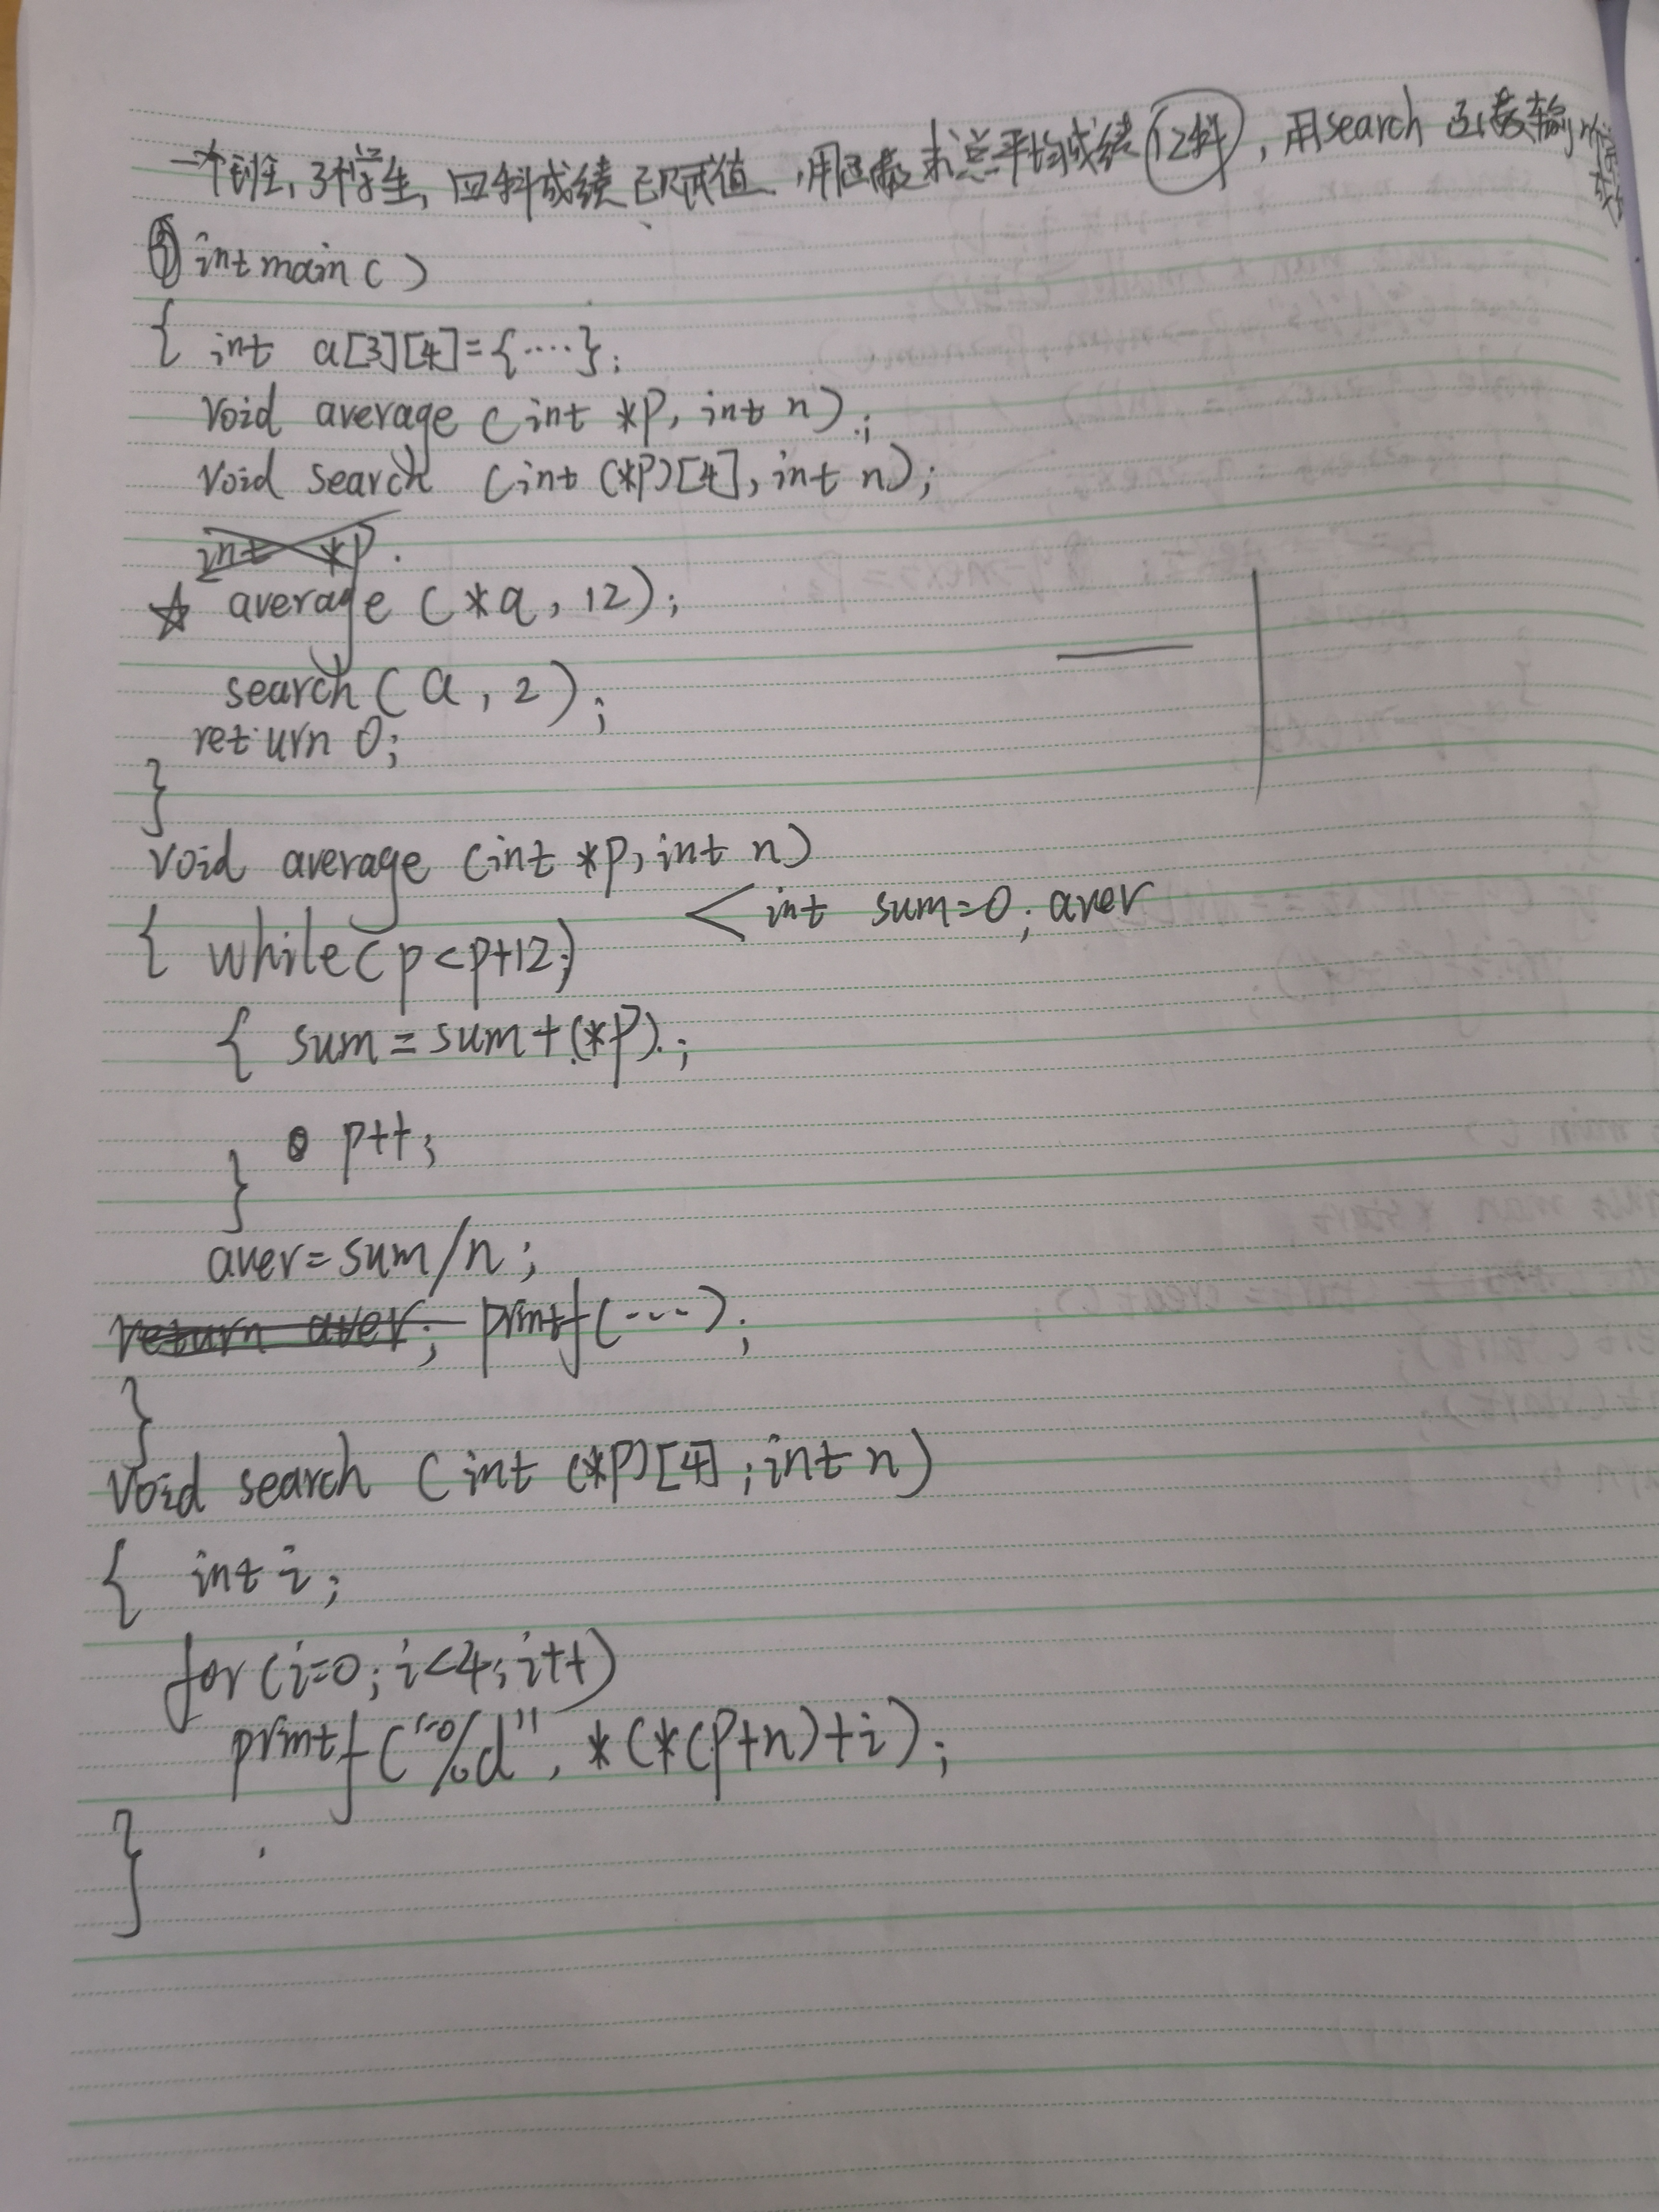 一个班, 3个学生, 四科成绩已赋值, 用函数求总平均成绩 (12科), 用search 函数输
① int main ( )
{ int a[3][4]={····};
void average (int *p, int n);
void search (int (*p)[4], int n);
int *p
☆ average (*a, 12);
search (a, 2);
return 0;
}
void average (int *p, int n)
< int sum=0; aver
{ while (p<p+12;)
{ sum = sum+(*p);
p++;
}
aver=sum/n;
return aver; printf(----);
}
void search (int (*p)[4]; int n)
{ int i;
for (i=0; i<4; i++)
printf ("%d", *(*(p+n)+i);
}